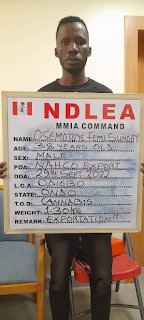 NDLEA
MMIA COMMAND
NAME: OSEMOJOYE FEMI SUNDAY
AGE: 38 YEARS OLD
SEX: MALE
POA: NAHCO EXPORT
DOA: 29TH SEPT. 2022
L.G.A: ODIGBO
STATE: ONDO
T.O.D: CANNABIS
WEIGHT: 1.30KG
REMARK: EXPORTATION